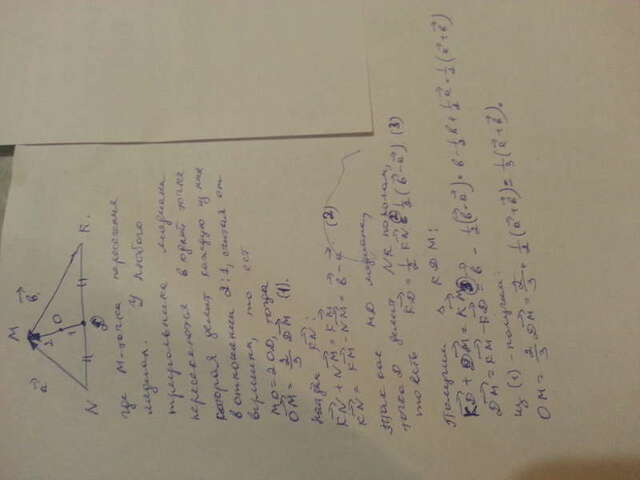 M
a⃗
b⃗
2
O
1
N
D
K.
где M-точка пересечения
медиан. У любого
треугольника медианы
пересекаются в одной точке
которая делит каждую из них
в отношении 2:1, считая от
вершины, то есть
MO=2OD, тогда
OM⃗ = 2/3 DM⃗ (1).
найдем KN⃗:
KN⃗ + NM⃗ = KM⃗
KN⃗ = KM⃗ - NM⃗ = b⃗ - a⃗. (2)
Так как MD медиана,
точка D делит NK пополам,
то есть KD⃗ = 1/2 KN⃗ = 1/2 (b⃗-a⃗) (3)
Получим Δ KDM:
KD⃗ + DM⃗ = KM⃗
DM⃗ = KM⃗ - KD⃗ = b⃗ - 1/2(b⃗-a⃗) = b - 1/2b + 1/2a⃗ = 1/2(a⃗+b⃗)
из (1) - получим:
OM = 2/3 DM⃗ = 2/3 · 1/2(a⃗+b⃗) = 1/3(a⃗+b⃗).